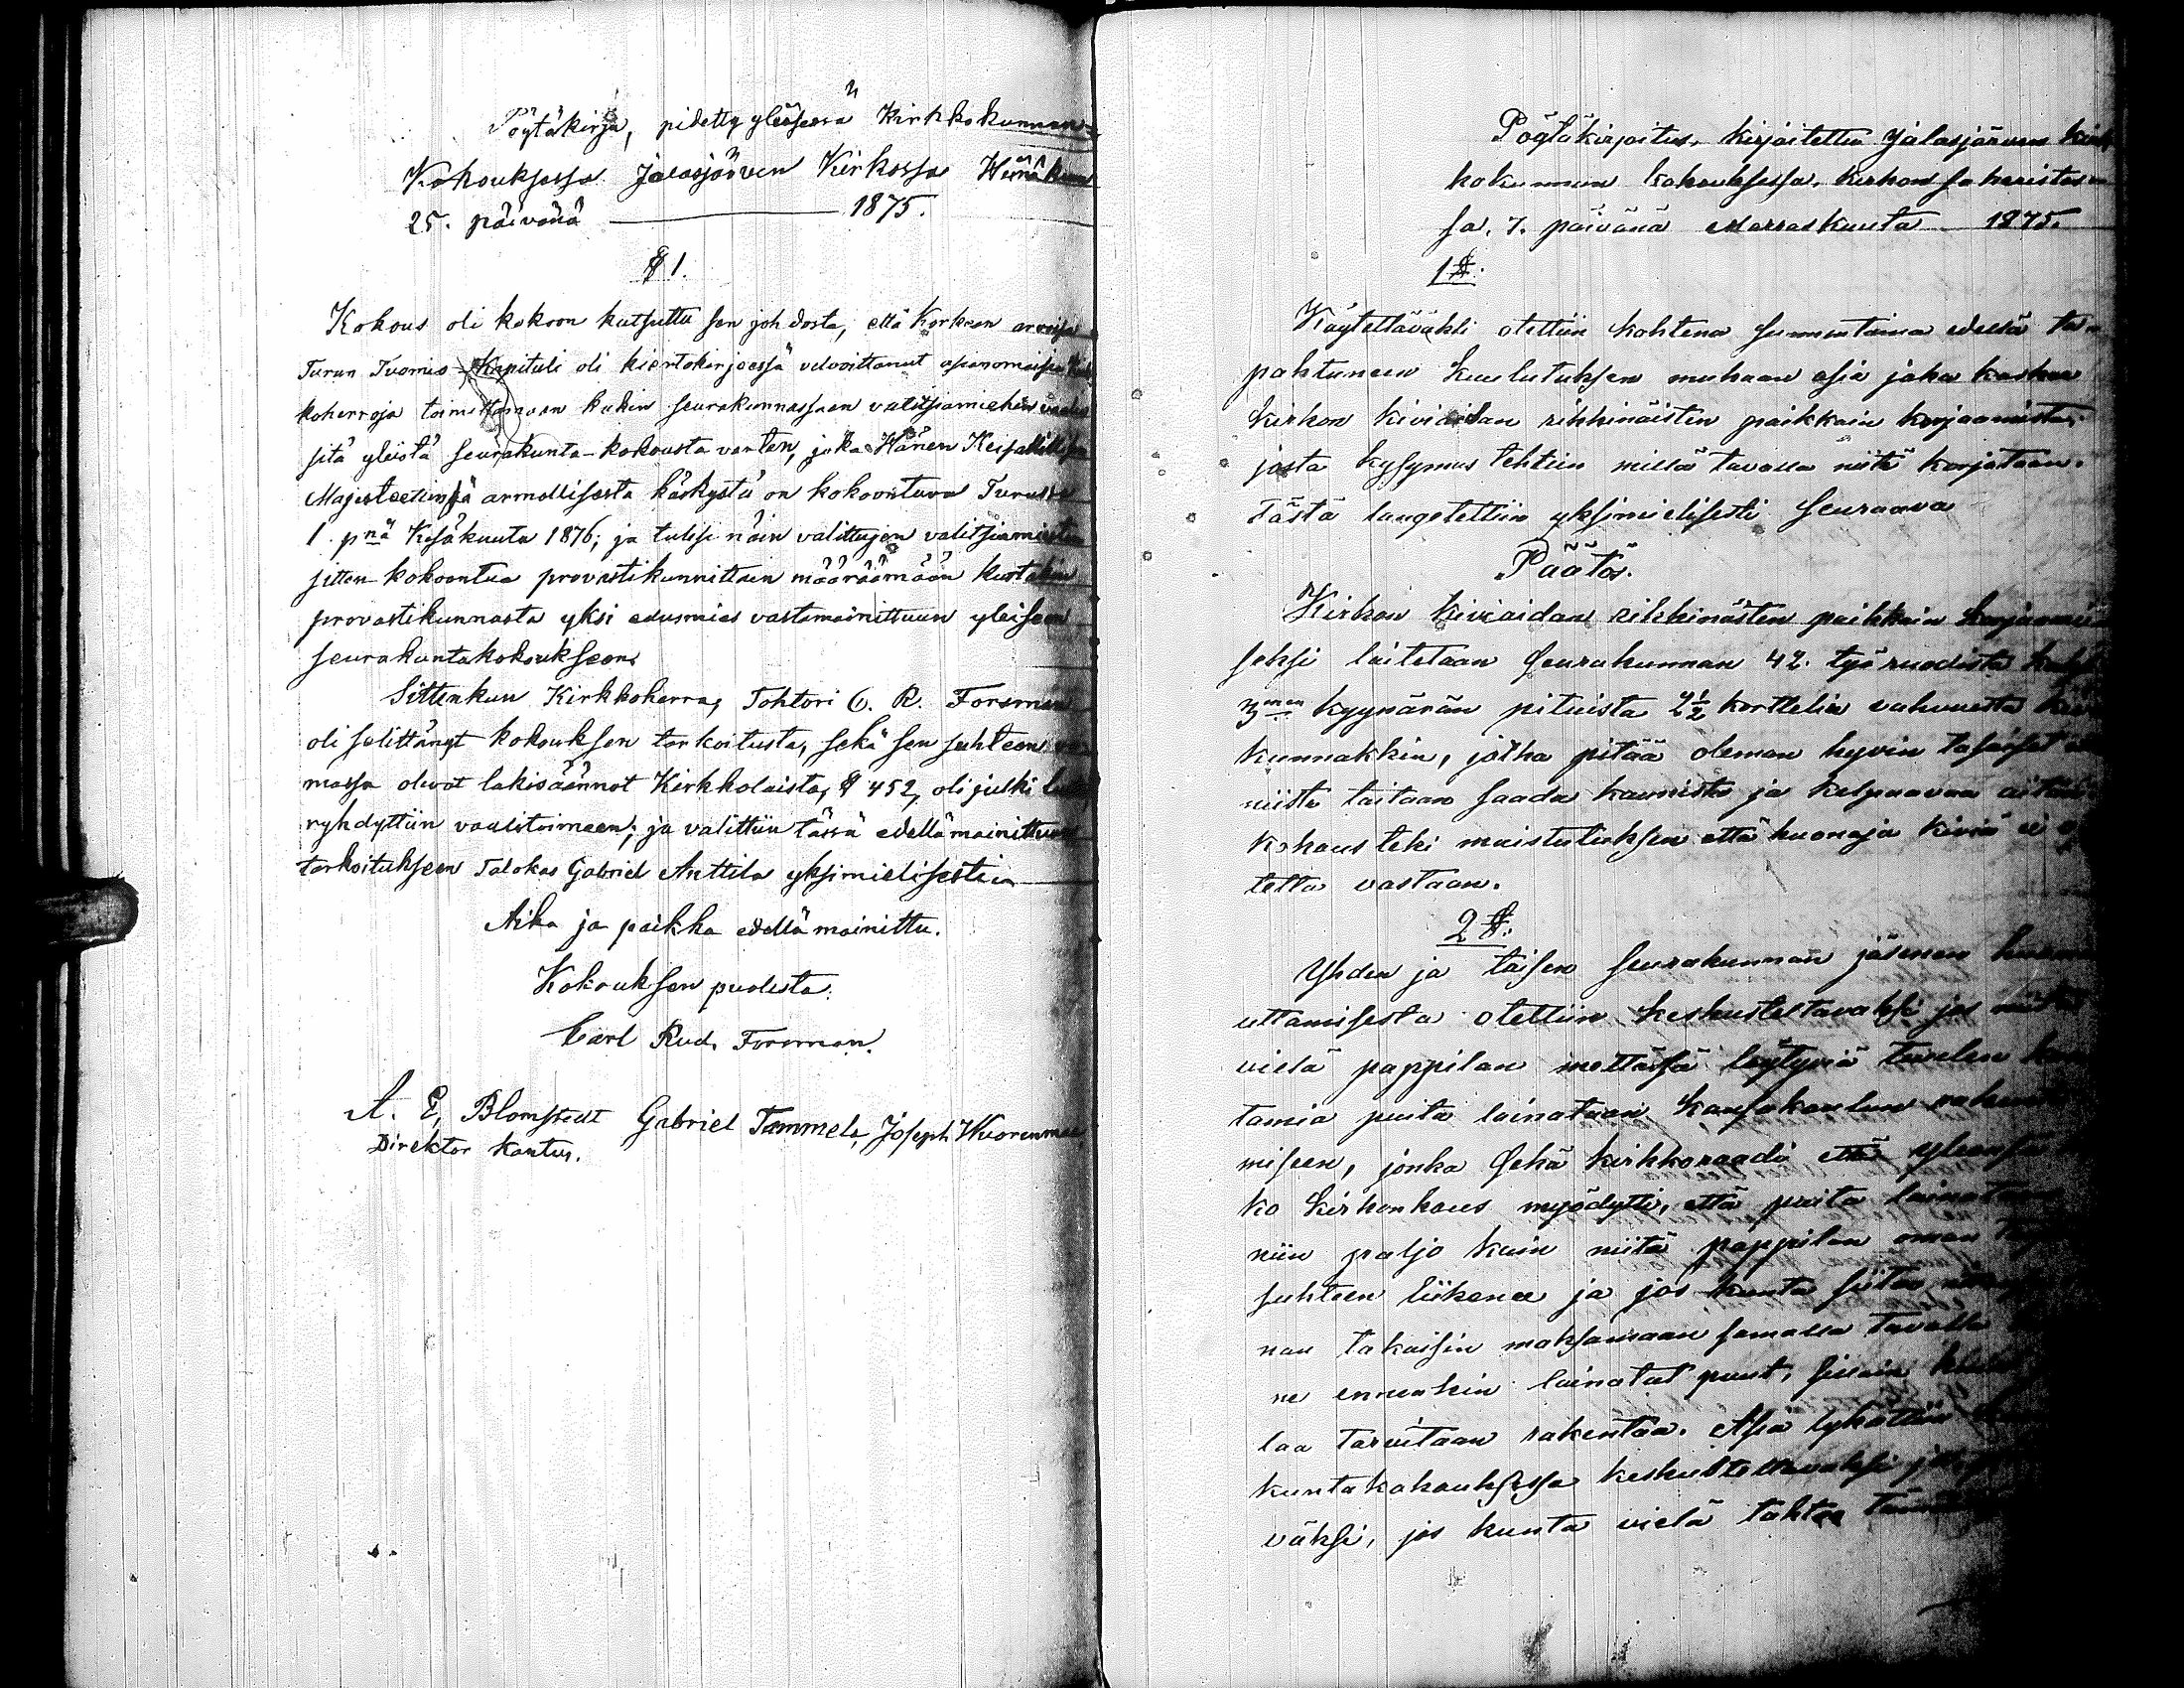 Pöytäkirja, pidetty yleisessä Kirkkokunnan-
Kokouksessa Jalasjärven Kirkossa Heinäkuun
25. päivänä 1875.
§ 1.
Kokous oli kokoon kutsuttu sen johdosta, että Korkean arvoisa
Turun Tuomio-Kapituli oli kiertokirjeessä velvoittanut asianomaisia
koherroja toimittamaan kukin seurakunnassaan valitsiamiehen vaalia
sitä yleistä seurakunta-kokousta varten, joka Hänen Keisarillisen
Majesteetinsä armollisesta käskystä on kokoontuva Turussa
1. pnä Kesäkuuta 1876; ja tulisi näin valittujen valitsiamiesten
sitten kokoontua provastikunnittain määräämään kustakin
provastikunnasta yksi edusmies vastamainittuun yleiseen
seurakuntakokoukseen.
Sittenkun Kirkkoherra, Tohtori C. R. Forsman
oli selittänyt kokouksen tarkoitusta, sekä sen suhteen
massa olevat lakisäännöt Kirkkolaista, § 452, oli julki
ryhdyttiin vaalitoimeen; ja valittiin tässä edellämainittuun
tarkoitukseen Talokas Gabriel Anttila yksimielisesti.
Aika ja paikka edellämainittu.
Kokouksen puolesta:
Carl Rud. Forsman.
A. E. Blomstedt Gabriel Tammela, Joseph Wuorenmaa
Direktor Kantor.
Pöytäkirjoitus, kirjoitettu Jalasjärven kirk
kokunnan kokouksessa, kirkon sakaristos
sa, 7. päivänä Marraskuuta 1875.
1 §.
Käytettäväksi otettiin kohtena sunnuntaina edellä ta
pahtuneen kuulutuksen mukaan asia joka koskee
kirkon kiviaidan rikkinäisten paikkain korjaamista,
josta kysymys tehtiin millä tavalla niitä korjataan.
Tästä langetettiin yksimielisesti seuraava
Päätös.
Kirkon kiviaidan rikkinäisten paikkain korjaami
seksi laitetaan Seurakunnan 42. työruodista
3men kyynärän pituista 2½ korttelia vahvuista
kunnakkin, jotka pitää oleman hyvin tasaiset
niistä taitaan saada kaunista ja kelpaavaa aitaa
kokous teki muistutuksen että huonoja kiviä ei
tetta vastaan.
2 §.
Yhden ja toisen seurakunnan jäsenen
uttamisesta otettiin keskusteltavaksi jos
vielä pappilan mettässä löytyviä tuulen
tamia puita lainataan kansakoulun
miseen, jonka Sekä kirkkoraadi että yleensä
ko kirkonkous myödytti, että puita lainataan
niin paljo kuin niitä pappilan oman
suhteen liikenee ja jos kunta siitä
nan takaisin maksamaan samalla tavalla
ne ennenkin lainatut puut, silloin
laa tarvitaan rakentaa. Asia lykättiin
kuntakokouksessa keskusteltavaksi
väksi, jos kunta vielä tahtoo